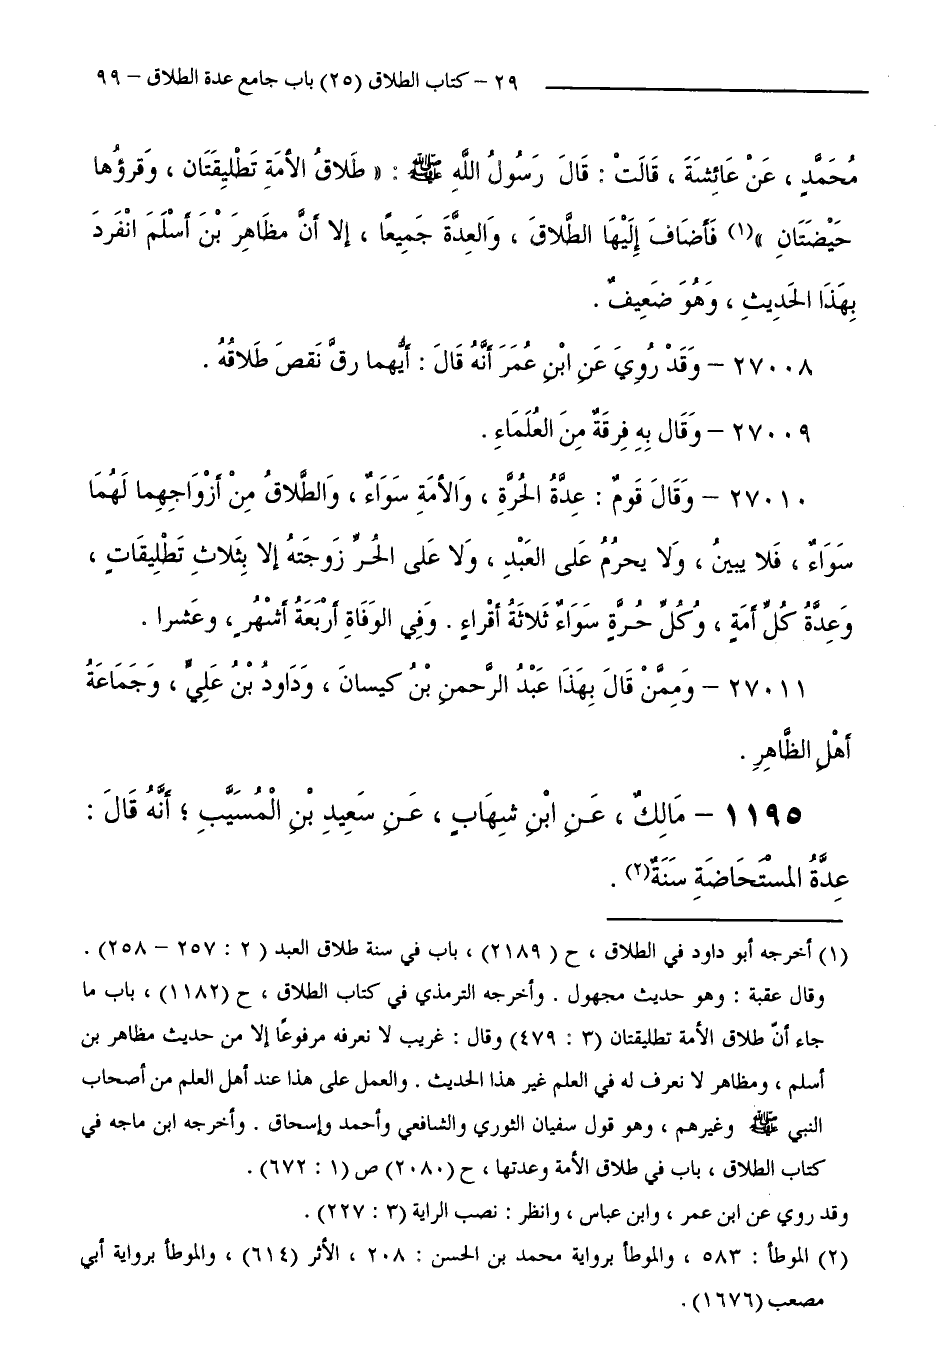 ٢٩ – كتاب الطلاق (٢٥) باب جامع عدة الطلاق – ٩٩
مُحَمَّدٍ ، عَنْ عَائِشَةَ ، قَالَتْ : قَالَ رَسُولُ اللَّهِ ﷺ : « طَلَاقُ الأَمَةِ تَطْلِيقَتَان ، وَقرؤُها
حَيْضَتَانِ »(١) فَأَضَافَ إِلَيْهَا الطَّلاقَ ، وَالعِدَّةَ جَمِيعًا ، إِلا أَنَّ مظَاهِرَ بْنَ أَسْلَمَ انْفَردَ
بِهَذَا الحَدِيثِ ، وَهُوَ ضَعِيفٌ .
٢٧٠٠٨ – وَقَدْ رُوِيَ عَنِ ابْنِ عُمَرَ أَنَّهُ قَالَ : أَيُّهما رقَّ نَقصَ طَلاقُهُ .
٢٧٠٠٩ – وَقَال بِهِ فِرقَةٌ مِنَ العُلَمَاءِ .
٢٧٠١٠ – وَقَالَ قَومٌ : عِدَّةُ الحُرَّةِ ، وَالأمَةِ سَوَاءٌ ، وَالطَّلاقُ مِنْ أَزْوَاجِهِما لَهُمَا
سَوَاءٌ ، فَلا يبينُ ، وَلا يحرُمُ عَلى العَبْدِ ، وَلا عَلى الحُرِّ زَوجَتهُ إِلا بِثَلاثِ تَطْلِيقَاتٍ ،
وَعِدَّةُ كُلِّ أمَةٍ ، وَكُلِّ حُرَّةٍ سَوَاءٌ ثَلاثَةُ أقْراءٍ . وَفِي الوَفَاةِ أَرْبَعَةُ أَشْهُرٍ ، وعَشرا .
٢٧٠١١ – وَمِمَّنْ قَالَ بِهَذَا عَبْدُ الرَّحمنِ بْنُ كيسانَ ، وَدَاودُ بْنُ عَلِيٍّ ، وَجَمَاعَةُ
أَهْلِ الظَّاهِرِ .
١١٩٥ – مَالِكٌ ، عَنِ ابْنِ شِهَابٍ ، عَنِ سَعِيدِ بْنِ الْمُسَيَّبِ ؛ أَنَّهُ قَالَ :
عِدَّةُ المسْتَحَاضَةِ سَنَةٌ(٢) .
(١) أخرجه أبو داود في الطلاق ، ح ( ٢١٨٩) ، باب في سنة طلاق العبد ( ٢ : ٢٥٧ – ٢٥٨) .
وقال عقبة : وهو حديث مجهول . وأخرجه الترمذي في كتاب الطلاق ، ح (١١٨٢) ، باب ما
جاء أنّ طلاق الأمة تطليقتان (٣ : ٤٧٩) وقال : غريب لا نعرفه مرفوعًا إلا من حديث مظاهر بن
أسلم ، ومظاهر لا نعرف له في العلم غير هذا الحديث . والعمل على هذا عند أهل العلم من أصحاب
النبي ﷺ وغيرهم ، وهو قول سفيان الثوري والشافعي وأحمد وإسحاق . وأخرجه ابن ماجه في
كتاب الطلاق ، باب في طلاق الأمة وعدتها ، ح (٢٠٨٠) ص (١ : ٦٧٢) .
وقد روي عن ابن عمر ، وابن عباس ، وانظر : نصب الراية (٣ : ٢٢٧) .
(٢) الموطأ : ٥٨٣ ، والموطأ برواية محمد بن الحسن : ٢٠٨ ، الأثر (٦١٤) ، والموطأ برواية أبي
مصعب (١٦٧٦) .